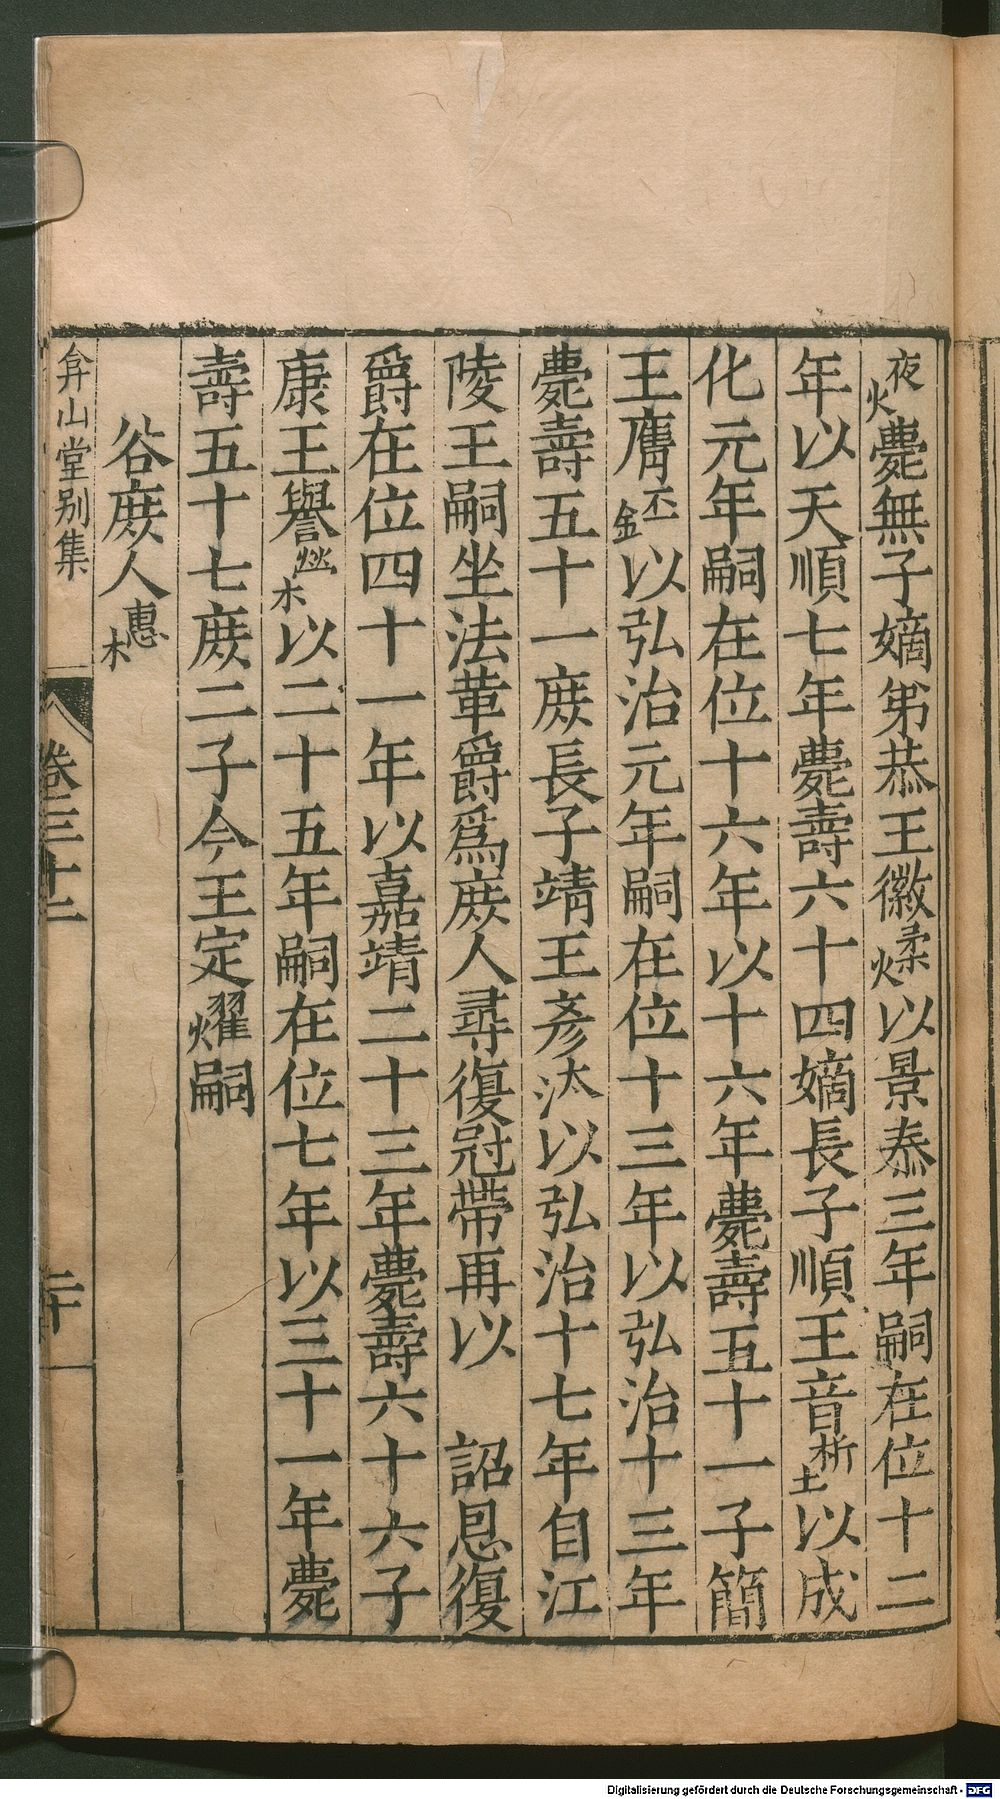 夜火薨無子嫡弟恭王徽柔火以景泰三年嗣在位十二
年以天順七年薨壽六十四嫡長子順王音析土以成
化元年嗣在位十六年以十六年薨壽五十一子簡
王膺丕金以弘治元年嗣在位十三年以弘治十三年
薨壽五十一庶長子靖王彥汰以弘治十七年自江
陵王嗣坐法革爵爲庶人尋復冠帶再以 詔恩復
爵在位四十一年以嘉靖二十三年薨壽六十六子
康王譽㷡木以二十五年嗣在位七年以三十一年薨
壽五十七庶二子今王定燿嗣
谷庶人惠木
弇山堂別集
卷三十二
二十
Digitalisierung gefördert durch die Deutsche Forschungsgemeinschaft - DFG